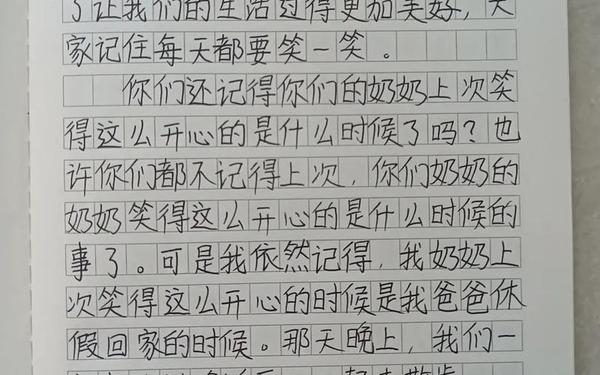 了让我们的生活过得更加美好，大
家记住每天都要笑一笑。
你们还记得你们的奶奶上次笑
得这么开心的是什么时候了吗？也
许你们都不记得上次，你们奶奶的
奶奶笑得这么开心的是什么时候的
事了。可是我依然记得，我奶奶上
次笑得这么开心的时候是我爸爸休
假回家的时候。那天晚上，我们一
一起去散步